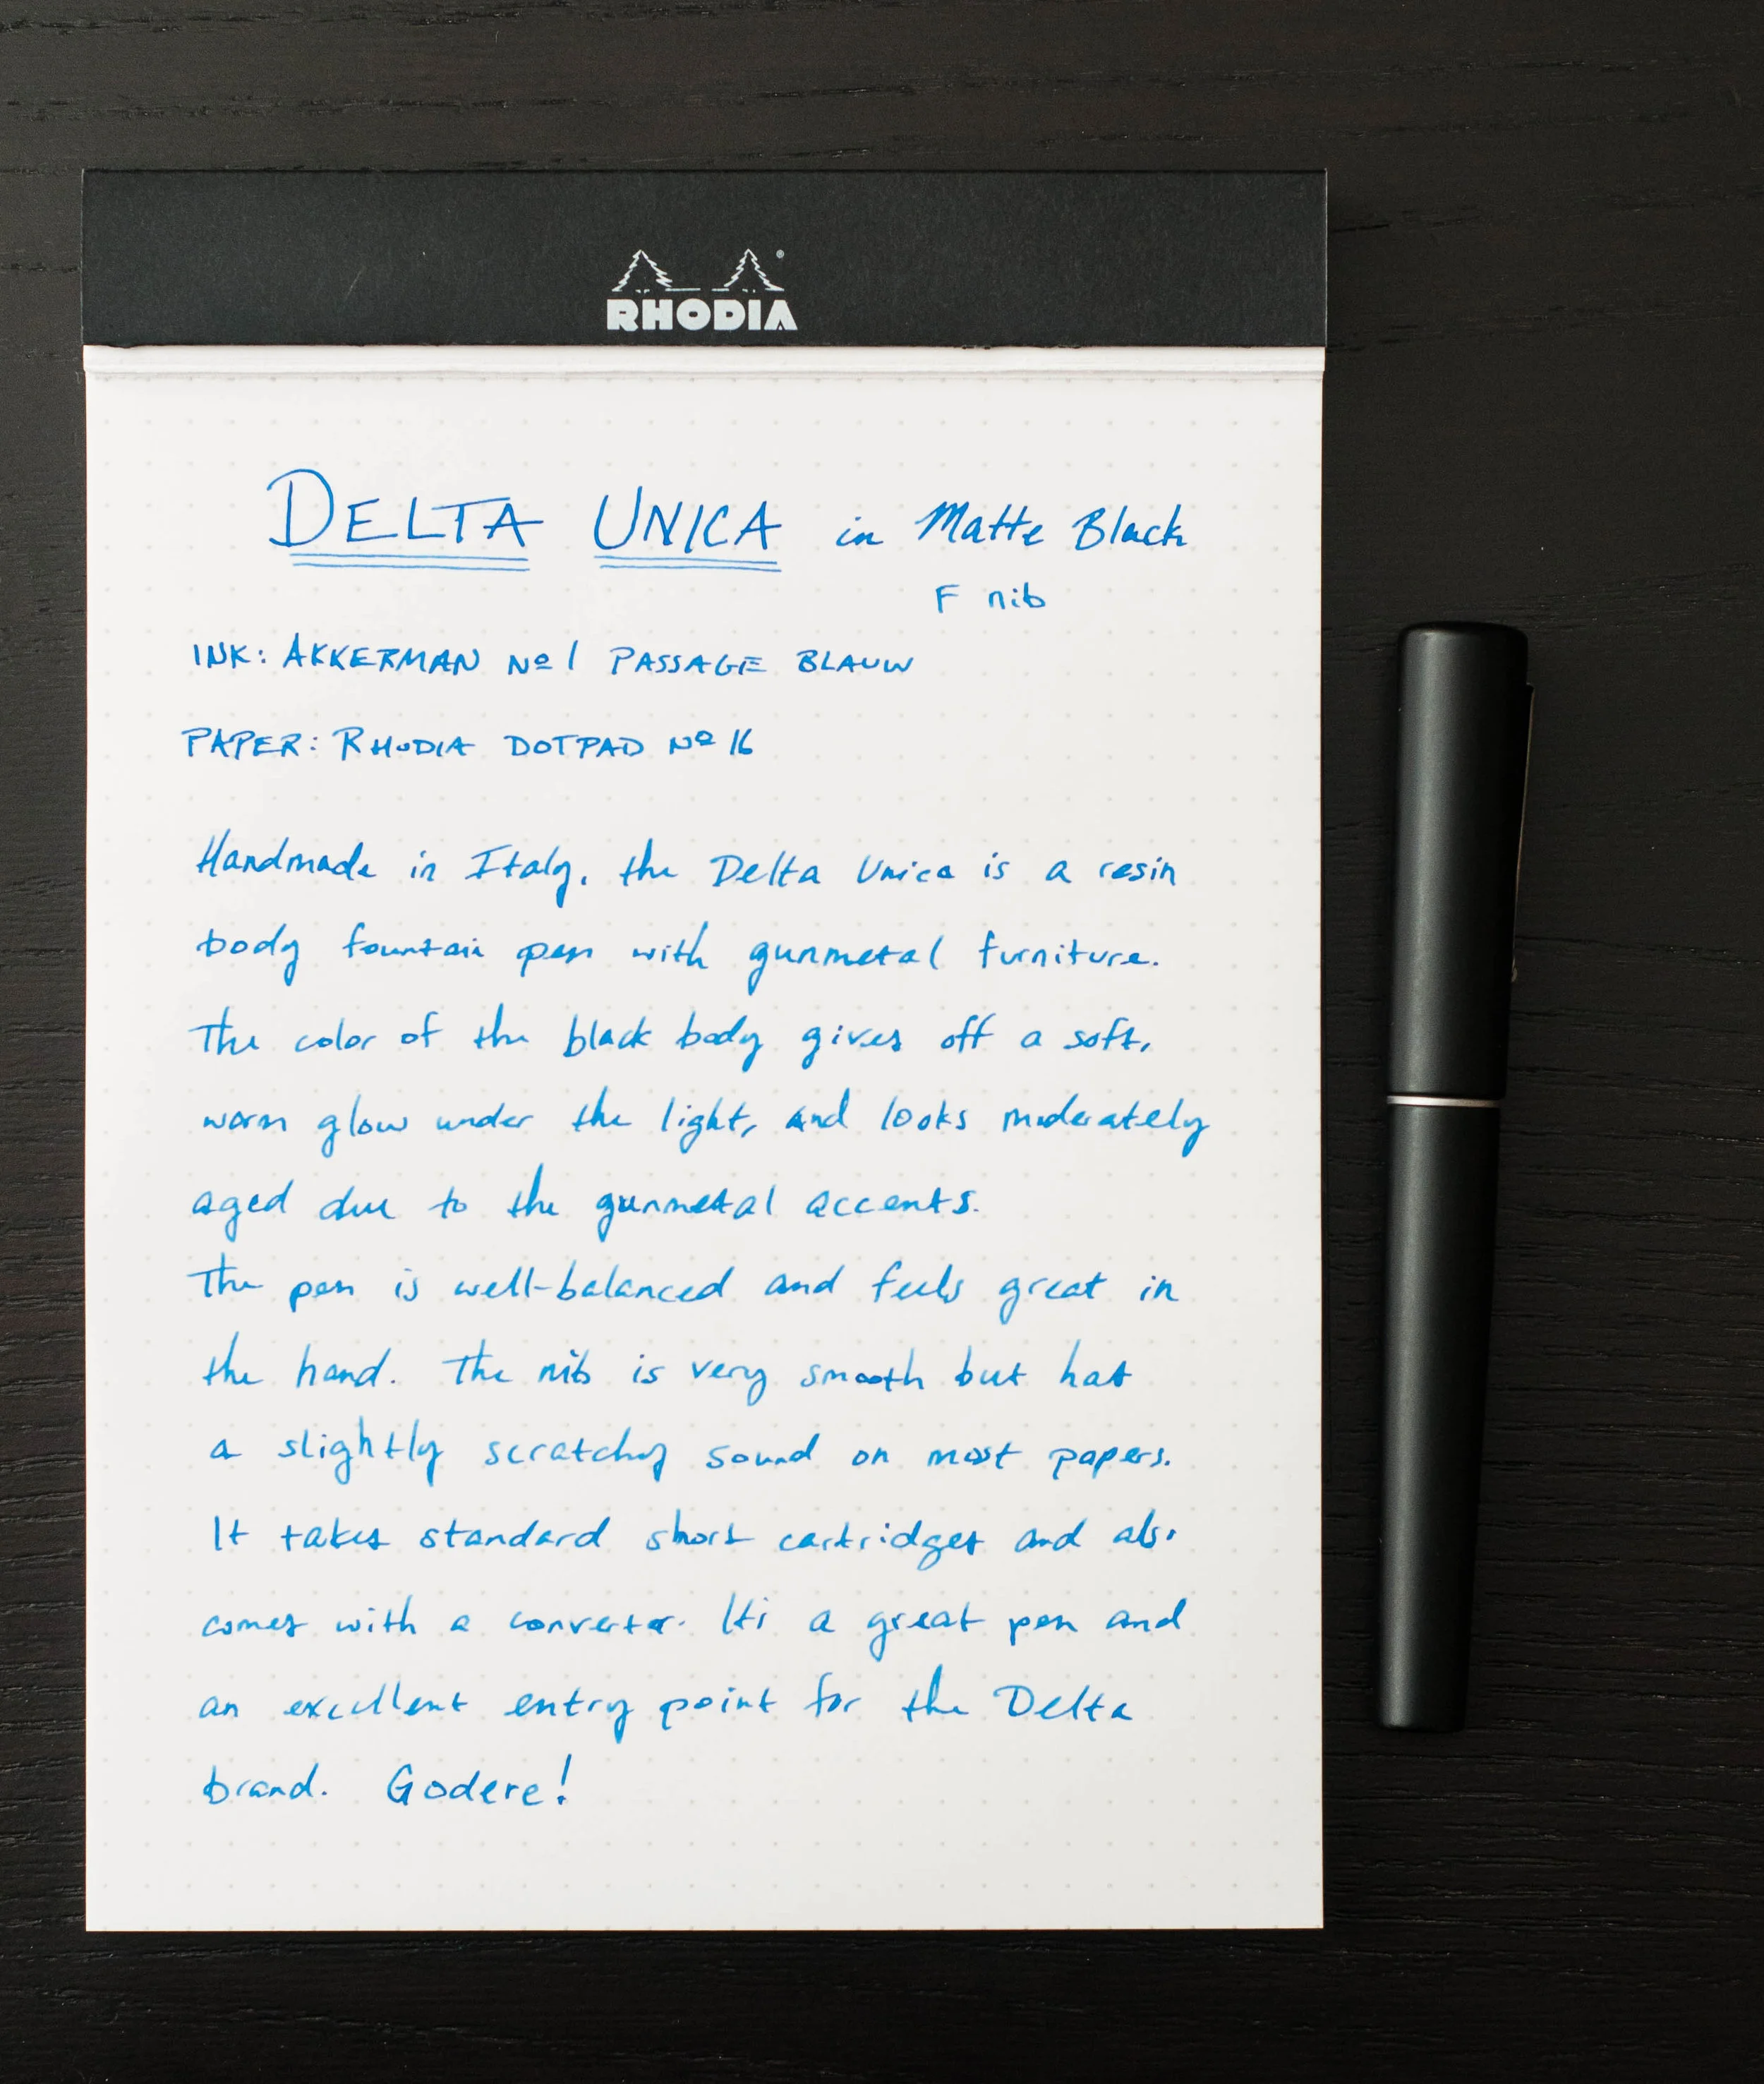 RHODIA
DELTA UNICA in Matte Black
F nib
INK: AKKERMAN Nº 1 PASSAGE BLAUW
PAPER: RHODIA DOTPAD Nº 16
Handmade in Italy, the Delta Unica is a resin
body fountain pen with gunmetal furniture.
The color of the black body gives off a soft,
warm glow under the light, and looks moderately
aged due to the gunmetal accents.
The pen is well-balanced and feels great in
the hand. The nib is very smooth but has
a slightly scratchy sound on most papers.
It takes standard short cartridges and also
comes with a converter. It's a great pen and
an excellent entry point for the Delta
brand. Godere!